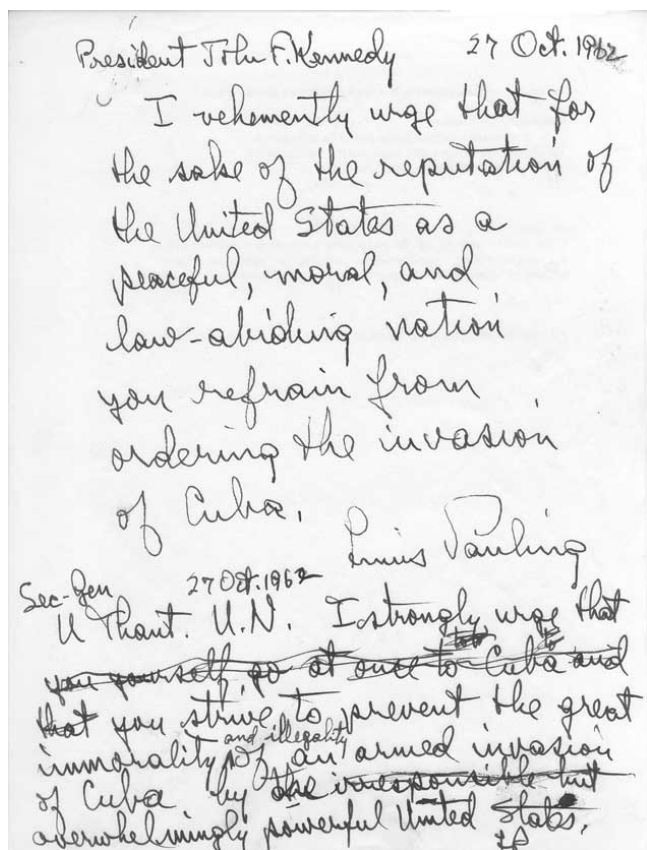 President John F. Kennedy 27 Oct. 1962
I vehemently urge that for
the sake of the reputation of
the United States as a
peaceful, moral, and
law-abiding nation
you refrain from
ordering the invasion
of Cuba.
Linus Pauling
Sec-Gen 27 Oct. 1962
U Thant. U.N. I strongly urge that
you yourself go at once to Cuba and
that you strive to prevent the great
and illegality
immorality of an armed invasion
of Cuba by the irresponsible but
overwhelmingly powerful United States.